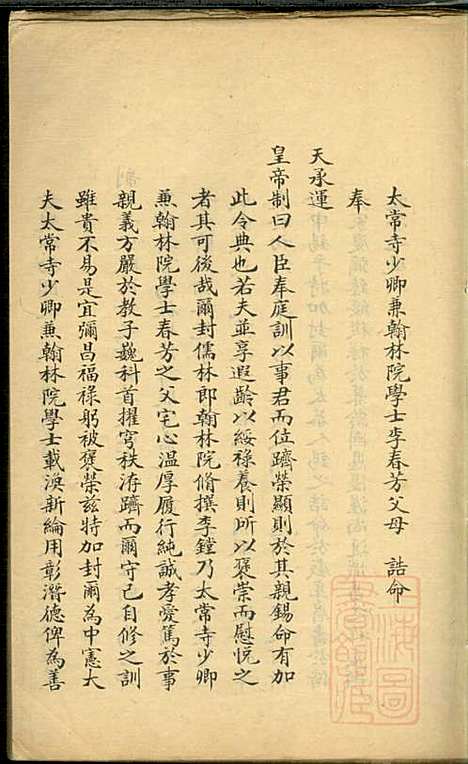 太常寺少卿兼翰林院學士李春芳父母 誥命
奉
天承運
皇帝制曰人臣奉庭訓以事君而位躋榮顯則於其親錫命有加
此令典也若夫並享遐齡以綏祿養則所以褒崇而慰悅之
者其可後哉爾封儒林郎翰林院脩撰李鏜乃太常寺少卿
兼翰林院學士春芳之父宅心溫厚履行純誠孝愛篤於事
親義方嚴於教子巍科首擢穹秩洊躋而爾守己自修之訓
雖貴不易是宜彌昌福祿躬被褒榮茲特加封爾為中憲大
夫太常寺少卿兼翰林院學士載渙新綸用彰潛德俾為善